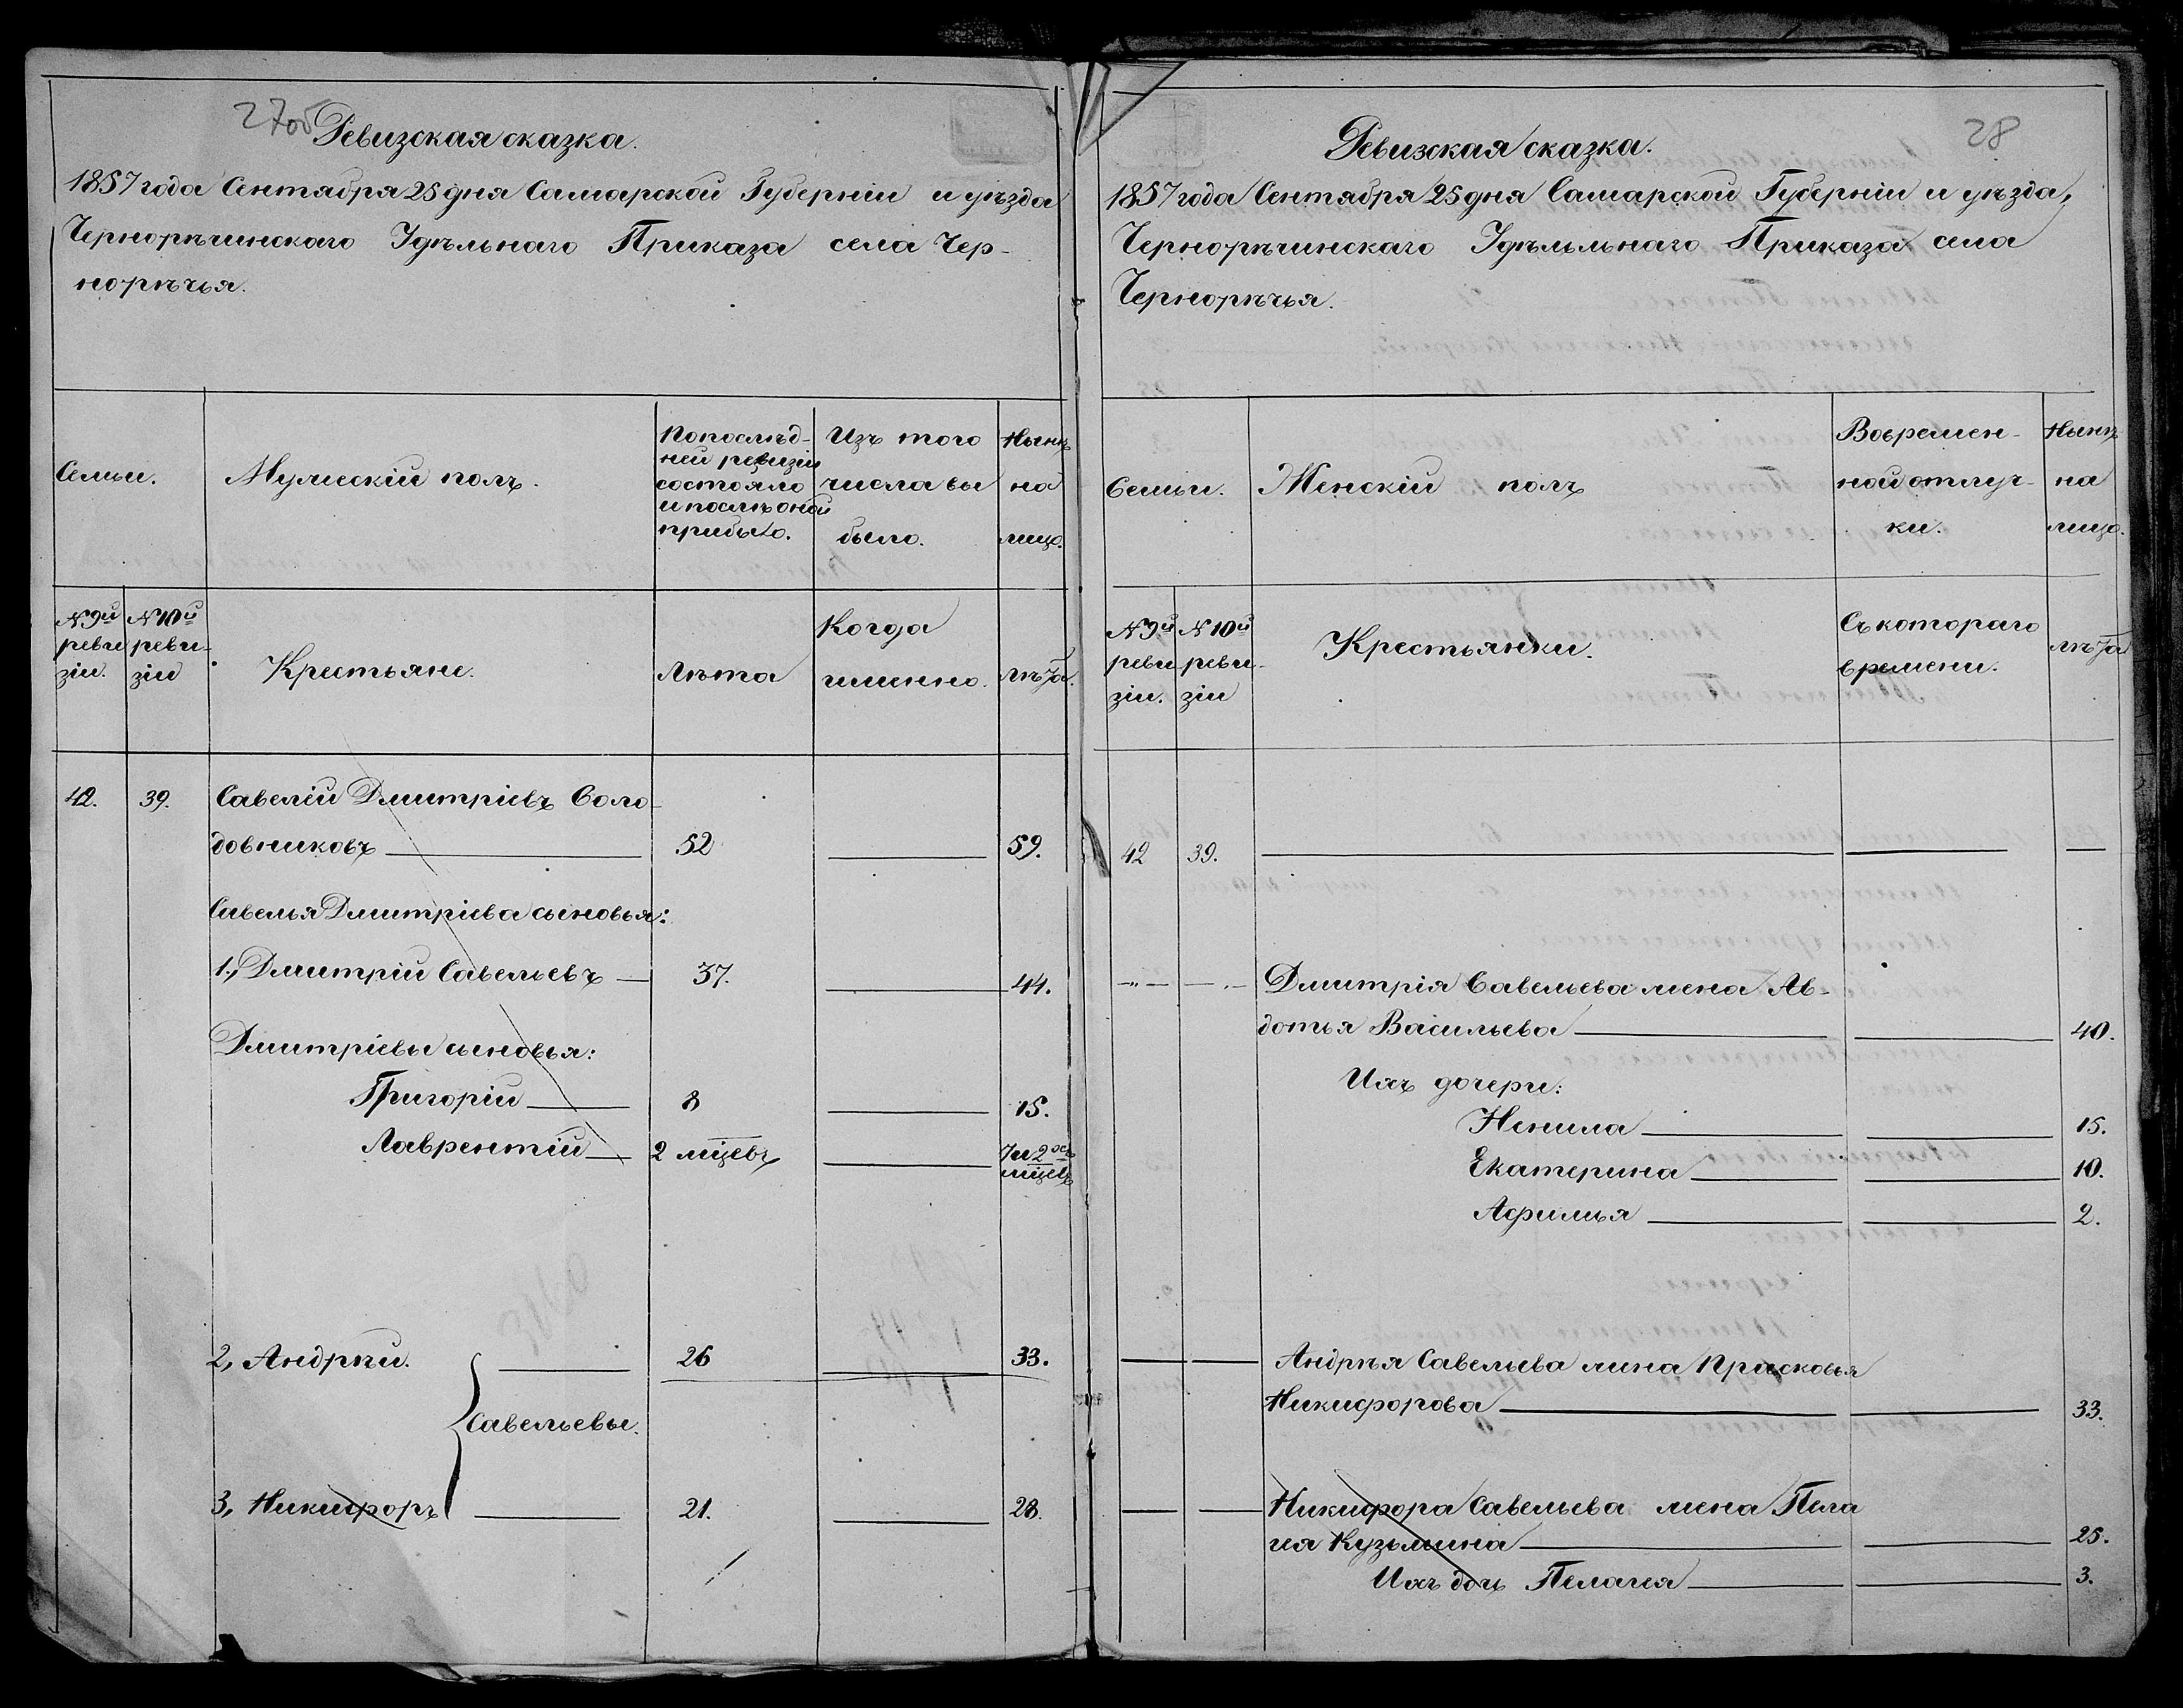 27об
Ревизская сказка.
1857 года Сентября 25 дня Самарской Губерніи и уѣзда
Чернорѣчинскаго Удѣльнаго Приказа села Чер-
норѣчья.
Семьи.
Мужескій полъ.
По послѣд-
ней ревизіи
состояло
и послѣ оной
прибыло.
Изъ того
числа вы
было.
Нынѣ
на
лицо.
№ 9й
реви
зіи.
№ 10й
реви-
зіи
Крестьяне.
Лѣта
Когда
именно.
лѣта.
42. 39. Савелій Дмитріевъ Соло-
довниковъ 52 59.
Савелья Дмитріева сыновья:
1., Дмитрій Савельевъ 37. 44.
Дмитріевы сыновья:
Григорій 8 15.
Лаврентій 2 мцевъ 7 и 2хъ
мцевъ
2, Андрѣй. 26 33.
Савельевы.
3, Никифоръ 21. 28.
28
Ревизская сказка.
1857 года Сентября 25 дня Самарской Губерніи и уѣзда,
Чернорѣчинскаго Удѣльльнаго Приказа села
Чернорѣчья.
Семьи.
Женскій полъ
Во времен-
ной отлуч-
ки.
Нынѣ
на
лицо.
№ 9й
реви
зіи.
№ 10й
реви-
зіи
Крестьянки.
Съ котораго
времени.
лѣта
42 39.
Дмитрія Савельева жена Ав-
дотья Васильева 40.
Ихъ дочери:
Ненила 15.
Екатерина 10.
Афимья 2.
Андрѣя Савельева жина Прасковья
Никифорова 33.
Никифора Савельева жена Пела
гея Кузьмина 25.
Ихъ дочь Пелагея 3.